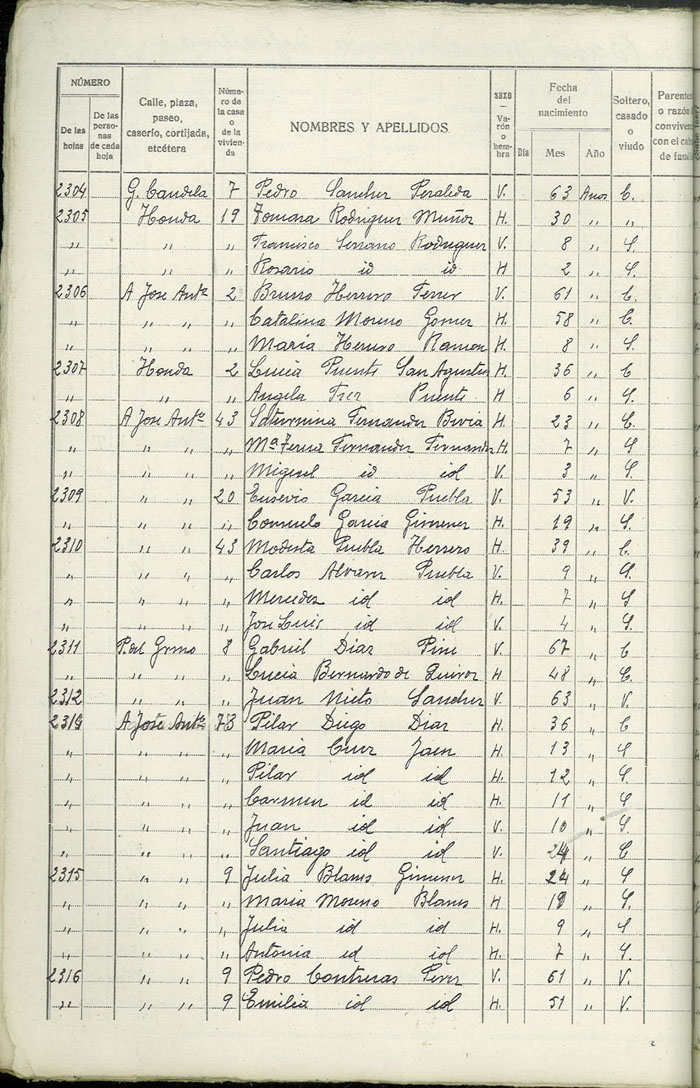 NÚMERO
De las hojas
De las perso-nas de cada hoja
Calle, plaza, paseo, caserío, cortijada, etcétera
Núme-ro de la casa o de la vivien-da
NOMBRES Y APELLIDOS
SEXO — Va-rón o hem-bra
Fecha del nacimiento
Día Mes Año
Soltero, casado o viudo
Parentes o razón convivenc con el cab de famil
2304 G. Candela 7 Pedro Sanchez Peraleda V. 63 Años C.
2305 Honda 19 Tomara Rodriguez Muñoz H. 30 " "
" " " Francisco Serrano Rodriguez V. 8 " S.
" " " Rosario id id H 2 " S.
2306 A Jose Antº 2 Bruno Herrero Ferrer V. 61 " C.
" " " " Catalina Moreno Gomez H. 58 " C.
" " " " Maria Herrero Ramon H. 8 " S.
2307 Honda 2 Lucia Puente San Agustin H. 36 " C
" " " Angela Puente H. 6 " S.
2308 A Jose Antº 43 Saturnina Fernandez H. 23 " C.
" " " " Mª Teresa Fernandez Fernandez H. 7 " S
" " " " Miguel id id V. 3 " S.
2309 " " 20 Eusevio Garcia Puebla V. 53 " V.
" " " " Consuelo Garcia Gimenez H. 19 " S.
2310 " " 43 Modesta Puebla Herrero H. 39 " C
" " " " Carlos Alvarez Puebla V. 9 " S.
" " " " Mercedes id id H. 7 " S
" " " " Jose Luis id id V. 4 " S.
2311 8 Gabriel Diaz V. 67 " C
" " " " Lucia Bernardo de Quiros H. 48 " C.
2312 " " " Juan Nieto Sanchez V. 63 " V.
A Jose Antº 73 Pilar Diego Diaz H. 36 " C
" " " " Maria Cruz Jaen H. 13 " S
" " " " Pilar id id H. 12 " S
" " " " Carmen id id H. 11 " S
" " " " Juan id id V. 10 " S.
" " " " Santiago id id V. " C
2315 " " 9 Julia Blanes Gimenez H. 24 " S
" " " " Maria Moreno Blanes H " S.
" " " " Julia id id H. 9 " S
" " " " Antonia id id H. 7 " S.
2316 " " 9 Pedro Contreras Perez V. 61 " V.
" " " 9 Emilia id id H. 51 " V.